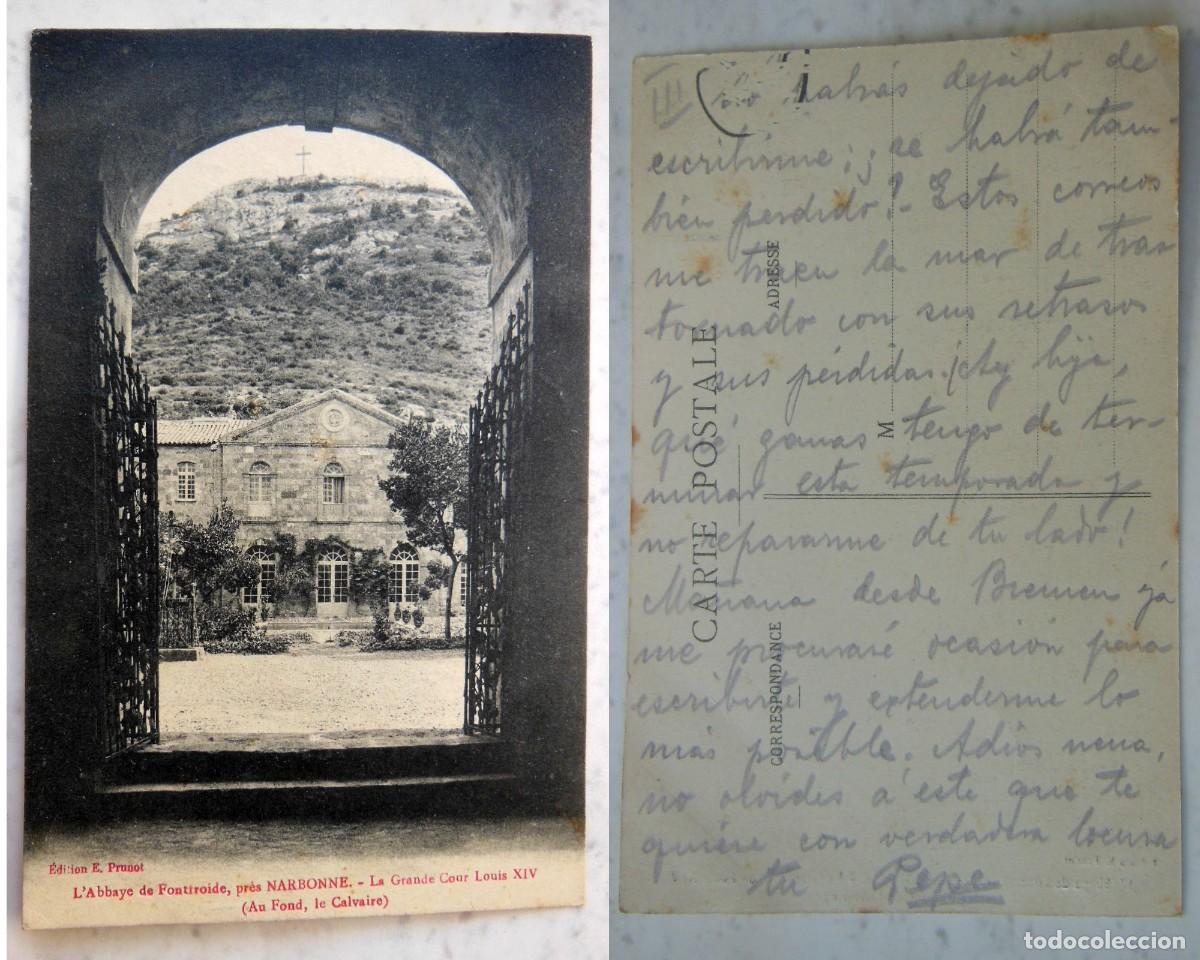 Édition E. Prunot
L'Abbaye de Fontfroide, près NARBONNE. - La Grande Cour Louis XIV
(Au Fond, le Calvaire)
III
no habrás dejado de
escribirme; ¿se habrá tam-
bien perdido? - Estos correos
me traen la mar de tras
tornado con sus retrasos
y sus pérdidas. ¡Ay hija,
qué ganas tengo de ter-
minar esta temporada y
no separarme de tu lado!
Mañana desde Bremen ya
me procuraré ocasión para
escribirte y extenderme lo
más posible. Adios nena,
no olvides á éste que te
quiere con verdadera locura
tu Pepe
CARTE POSTALE
CORRESPONDANCE
ADRESSE
M
todocoleccion